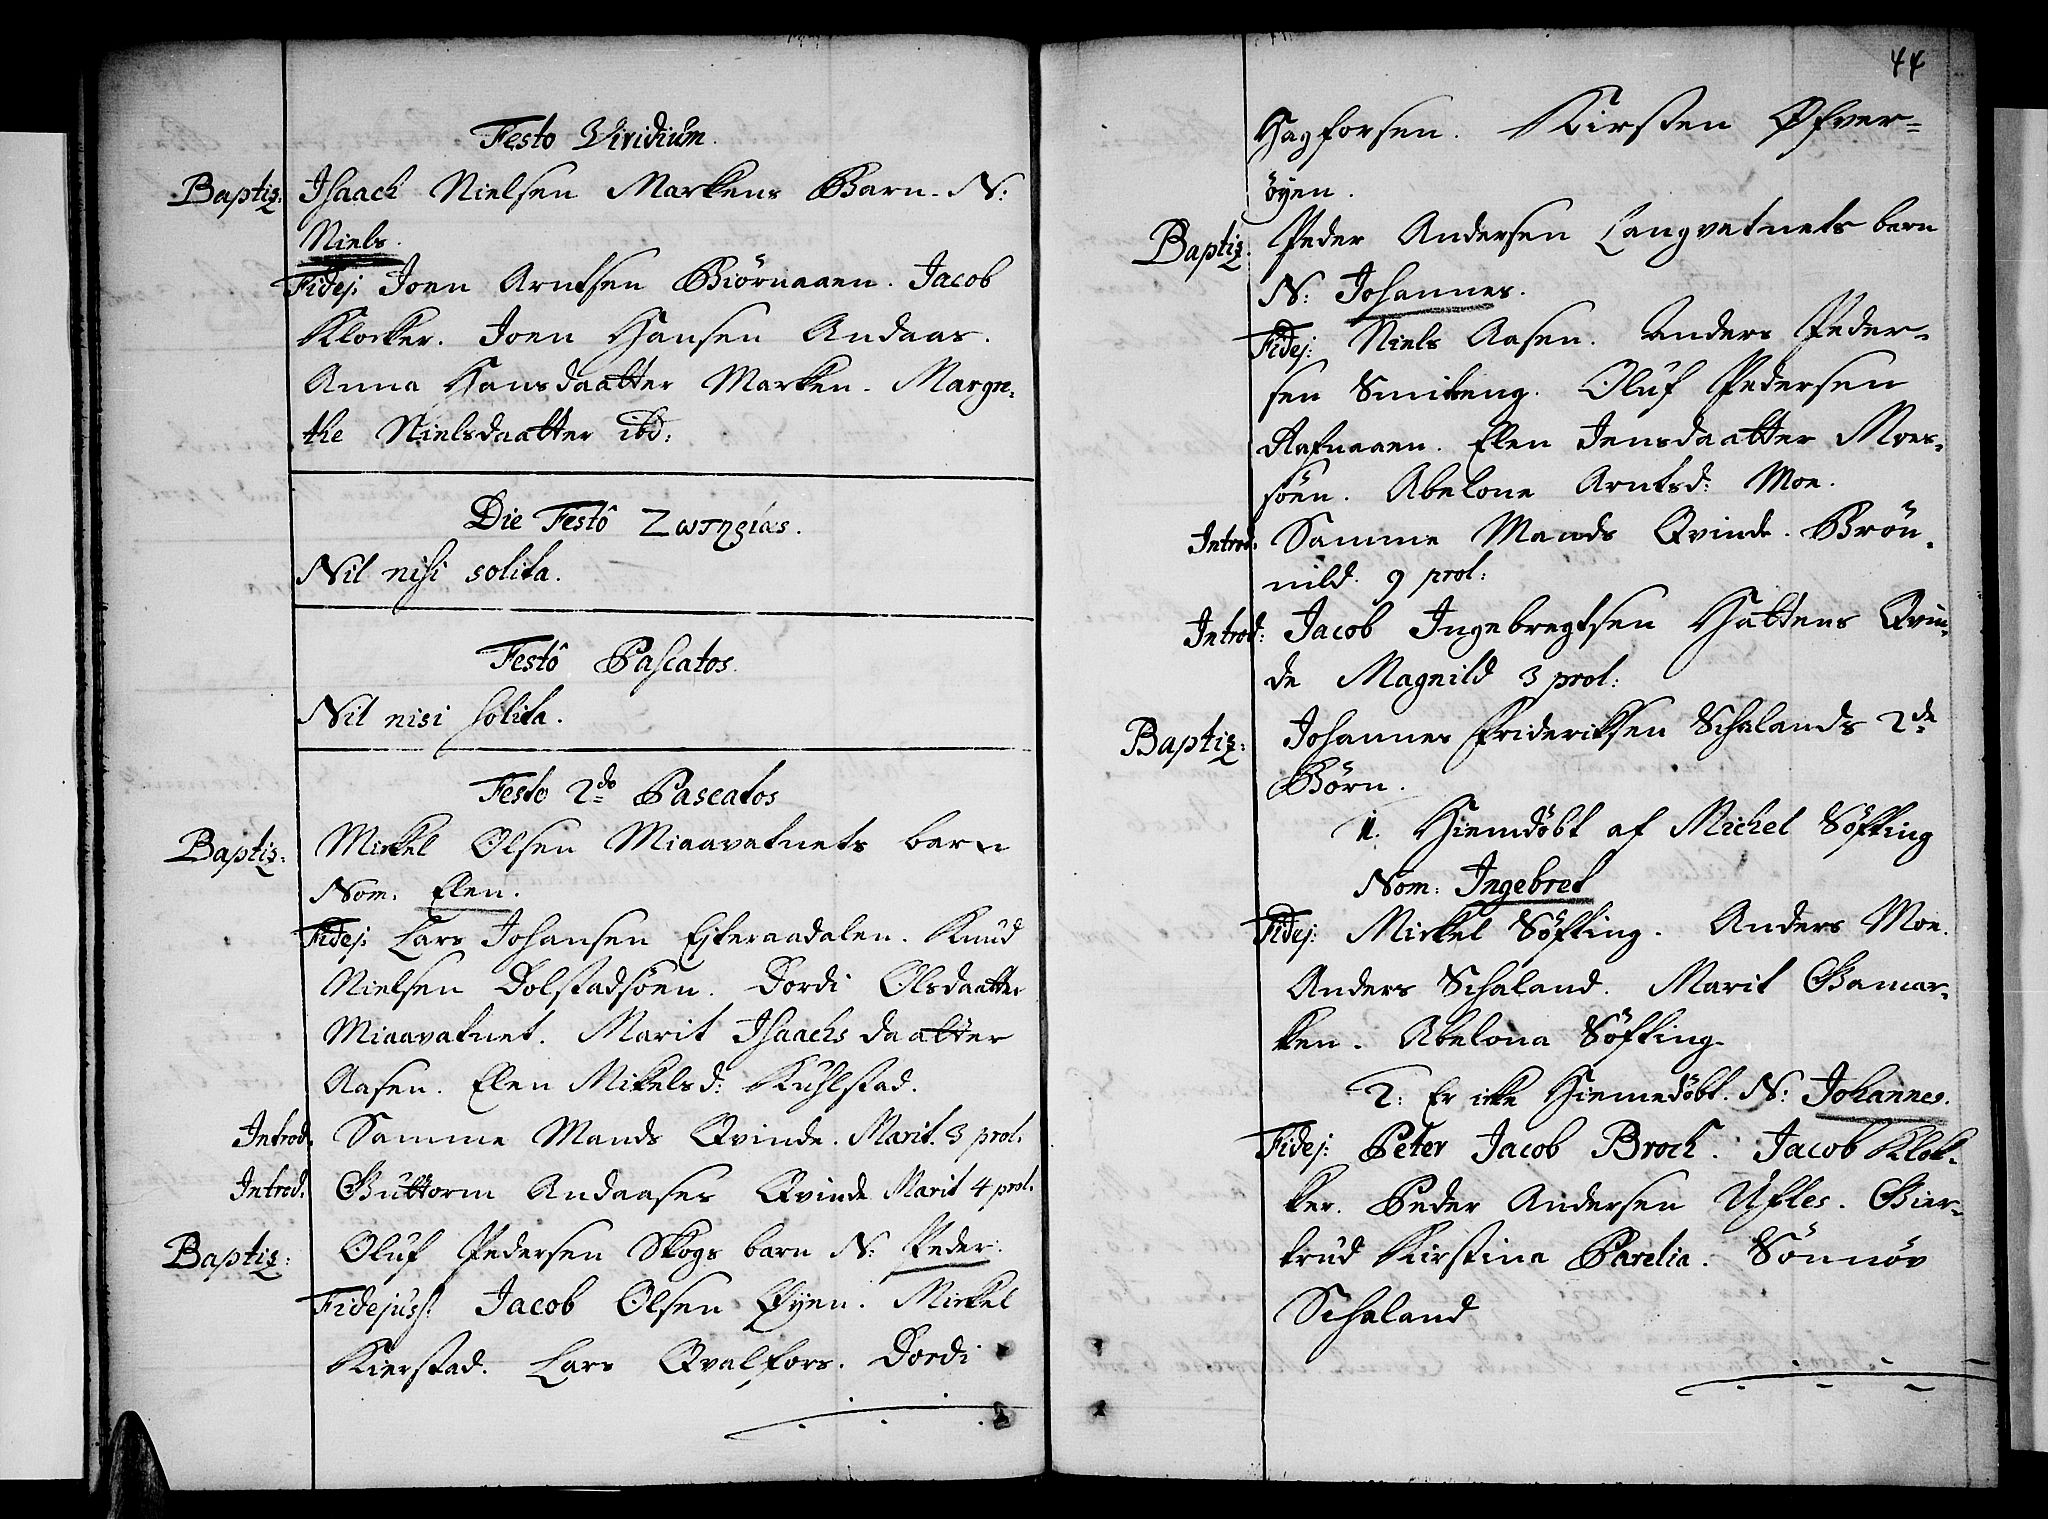 Festo Viridium.
Baptiz: Isaach Nielsen Markens Barn. N:
Niels.
Fidej: Joen Arntsen Biörnaaen. Jacob
Klocker. Joen Hansen Andaas.
Anna Hansdaatter Marken. Margre-
the Nielsdaatter ibd:
Die Festô Σωτηρίας.
Nil nisi solita.
Festô Pascatos.
Nil nisi solita.
Festo 2do Pascatos
Baptiz: Mickel Olsen Miaavatnets barn
Nom. Elen.
Fidej: Lars Johansen Eiteraadalen. Knud
Nielsen Dolstadsöen. Dordi Olsdaatter
Miaavatnet. Marit Isaachsdaatter
Aasen. Elen Mikelsd: Kuhlstad.
Introd. Samme Mands Qvinde. Marit. 3 prol.
Introd. Guttorm Andaases Qvinde Marit 4 prol.
Baptiz: Oluf Pedersen Skogs barn N: Peder.
Fidejuss: Jacob Olsen Øyen. Mickel
Kierstad. Lars Qvalfors. Dordi
44
Hagforsen. Kirsten Øfver-
öyen.
Baptiz: Peder Andersen Langvatnets barn
N: Johannes.
Fidej: Niels Aasen. Anders Peder-
sen Smiteng. Oluf Pedersen
Rafnaaen. Elen Jensdaatter Moes-
söen. Abelone Arntsd: Moe.
Introd: Samme Mands Qvinde. Brön-
nild. 9 prol:
Introd: Jacob Ingebregtsen Hattens Qvin-
de Magnild 3 prol:
Baptiz: Johannes Frideriksen Schalands 2de
Börn.
1. Hiemdöbt af Michel Söfting
Nom: Ingebret
Fidej: Mickel Söfting. Anders Moe.
Anders Schaland. Marit Gamar-
ken. Abelona Söfting.
2: Er icke Hiemedöbt. N: Johannes.
Fidej: Peter Jacob Brock. Jacob Klok-
ker. Peder Andersen Ufles. Gier-
trud Kirstina Parelia. Sönnöv
Schaland